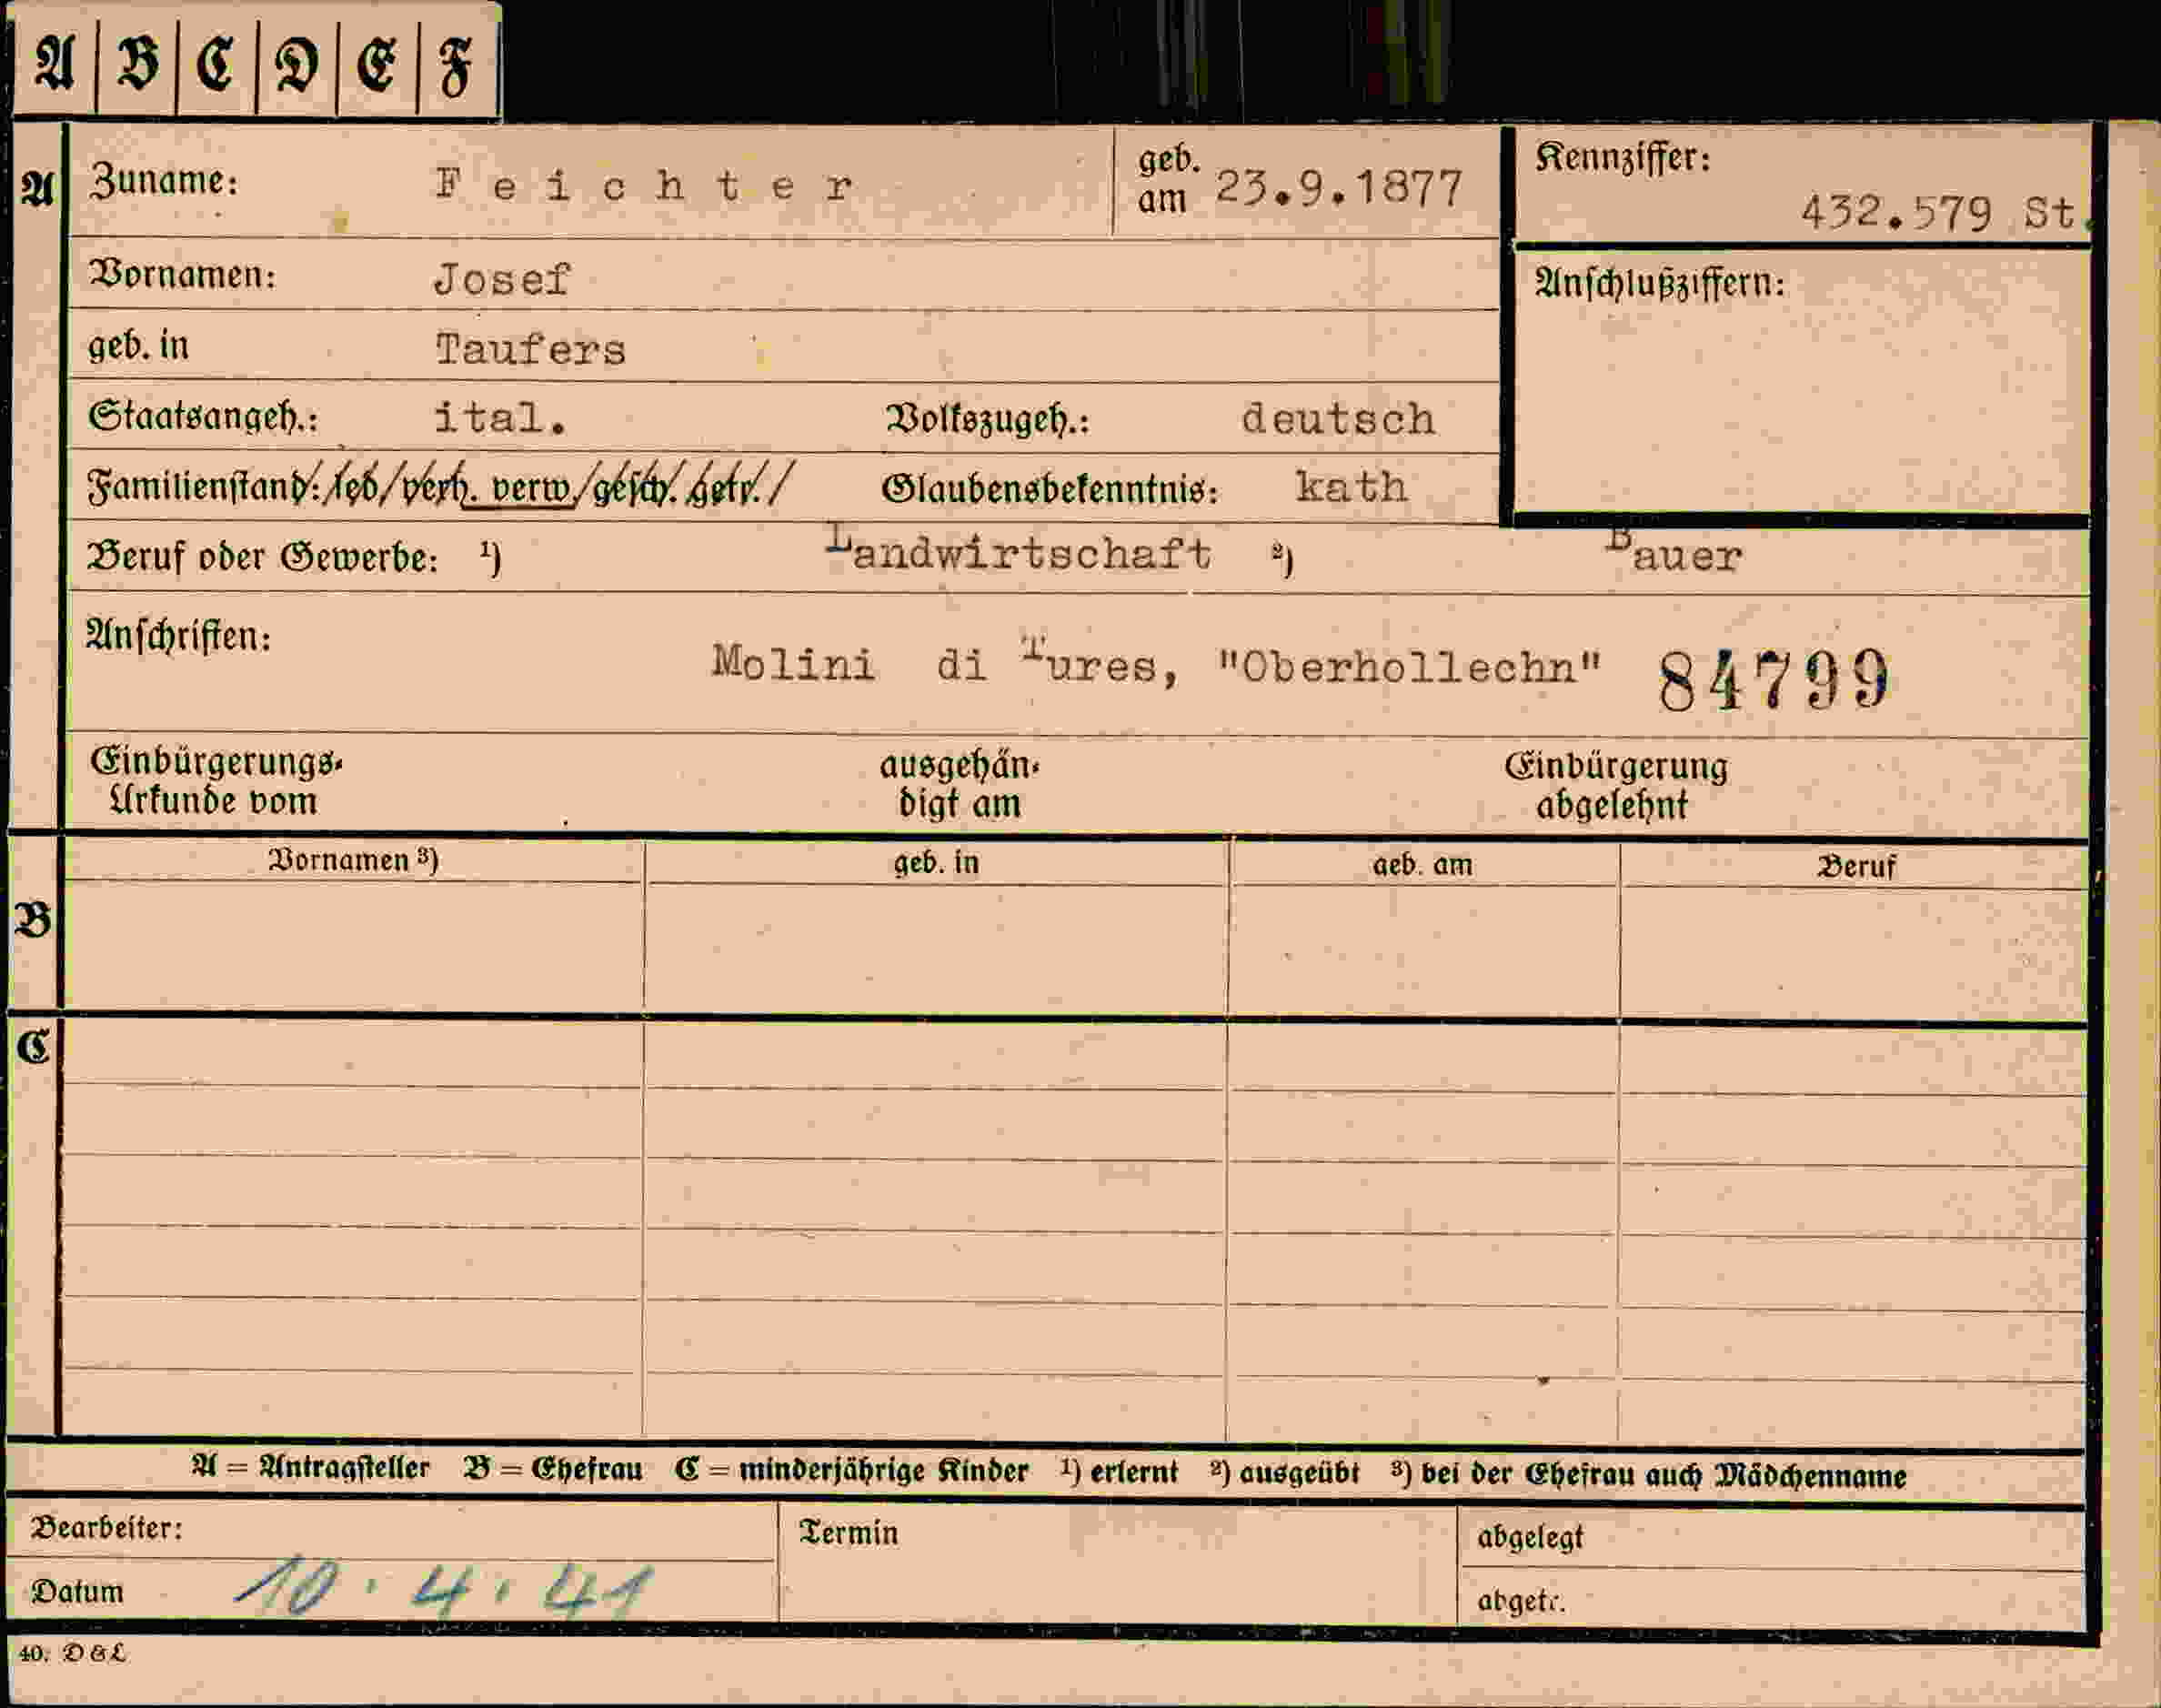 A B C D E F
A Zuname: Feichter geb. am 23.9.1877 Kennziffer: 432.579 St.
Vornamen: Josef Anschlußziffern:
geb. in Taufers
Staatsangeh.: ital. Volkszugeh.: deutsch
Familienstand: led/verh. verw/gesch. getr./ Glaubensbekenntnis: kath
Beruf oder Gewerbe: ¹) Landwirtschaft ²) Bauer
Anschriften: Molini di Tures, "Oberhollechn" 84799
Einbürgerungs- ausgehän- Einbürgerung
Urkunde vom digt am abgelehnt
Vornamen ³) geb. in geb. am Beruf
B
C
A = Antragsteller B = Ehefrau C = minderjährige Kinder ¹) erlernt ²) ausgeübt ³) bei der Ehefrau auch Mädchenname
Bearbeiter: Termin abgelegt
Datum 10.4.41 abgetr.
40. D & L